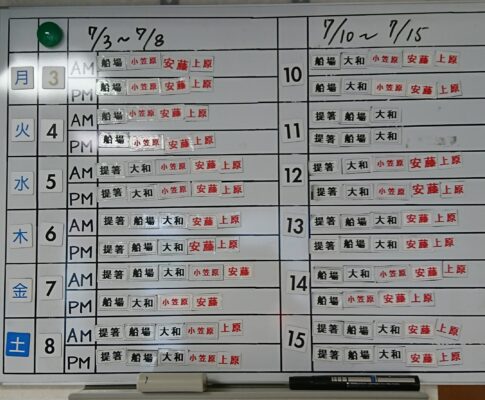 7/3～7/8 7/10～7/15
月 3 AM 船場 小笠原 安藤 上原 10 船場 大和 小笠原 安藤 上原
PM 船場 小笠原 安藤 上原 船場 大和 小笠原 安藤 上原
火 4 AM 船場 小笠原 安藤 上原 11 提箸 船場 大和
PM 船場 小笠原 安藤 上原 提箸 船場 大和
水 5 AM 提箸 大和 小笠原 安藤 上原 12 提箸 大和 小笠原 安藤 上原
PM 提箸 大和 小笠原 安藤 上原 提箸 大和 小笠原 安藤 上原
木 6 AM 提箸 船場 大和 安藤 上原 13 提箸 船場 大和 安藤 上原
PM 提箸 船場 大和 安藤 上原 提箸 船場 大和 安藤 上原
金 7 AM 提箸 船場 大和 小笠原 安藤 14 船場 大和 小笠原 安藤 上原
PM 船場 大和 小笠原 安藤 船場 小笠原 安藤 上原
土 8 AM 提箸 船場 大和 小笠原 上原 15 提箸 船場 大和 安藤 上原
PM 提箸 船場 大和 小笠原 上原 提箸 船場 大和 安藤 上原